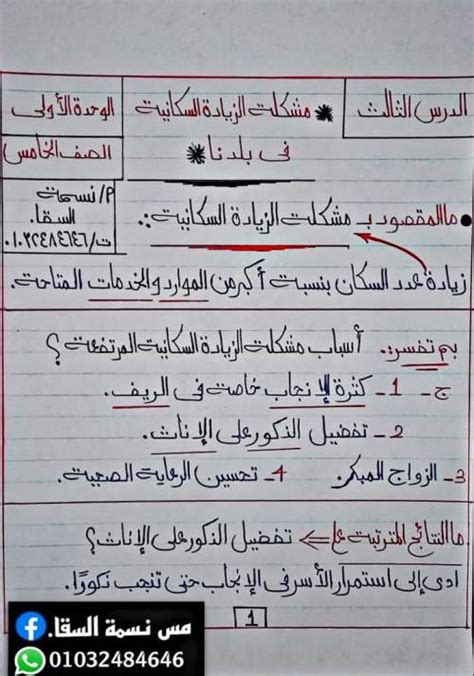 الدرس الثالث
* مشكلة الزيادة السكانية
فى بلدنا *
الوحدة الأولى
الصف الخامس
P/ نسمة
السقا.
ت/ ٠١٠٣٢٤٨٤٦٤٦
• ما المقصود بـ مشكلة الزيادة السكانية :.
زيادة عدد السكان بنسبة أكبر من الموارد والخدمات المتاحة.
بم تفسر:. أسباب مشكلة الزيادة السكانية المرتفعة ؟
ج - 1 - كثرة الإنجاب خاصة فى الريف.
2 - تفضيل الذكور على الإناث.
3 - الزواج المبكر. 4 - تحسين الرعاية الصحية.
ما النتائج المترتبة على <= تفضيل الذكور على الإناث؟
ادى إلى استمرار الأسر فى الإنجاب حتى تنجب ذكورًا.
1
مس نسمة السقا.
01032484646